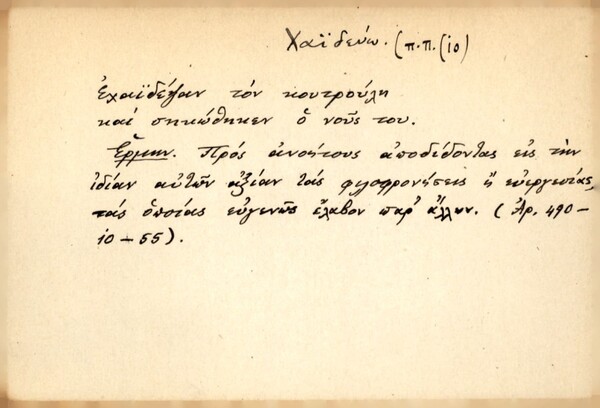 Χαϊδεύω. (π.π. (10)
Ἐχαϊδέψαν τόν κουτρούλη
καί σηκώθηκεν ὁ νοῦς του.
Ἑρμην. Πρός ἀνοήτους ἀποδίδοντας εἰς τήν
ἰδίαν αὐτῶν ἀξίαν τάς φιλοφρονήσεις ἤ εὐεργεσίας,
τάς ὁποίας εὐγενῶς ἔλαβον παρ' ἄλλων. (Ἀρ. 490-
10-55).